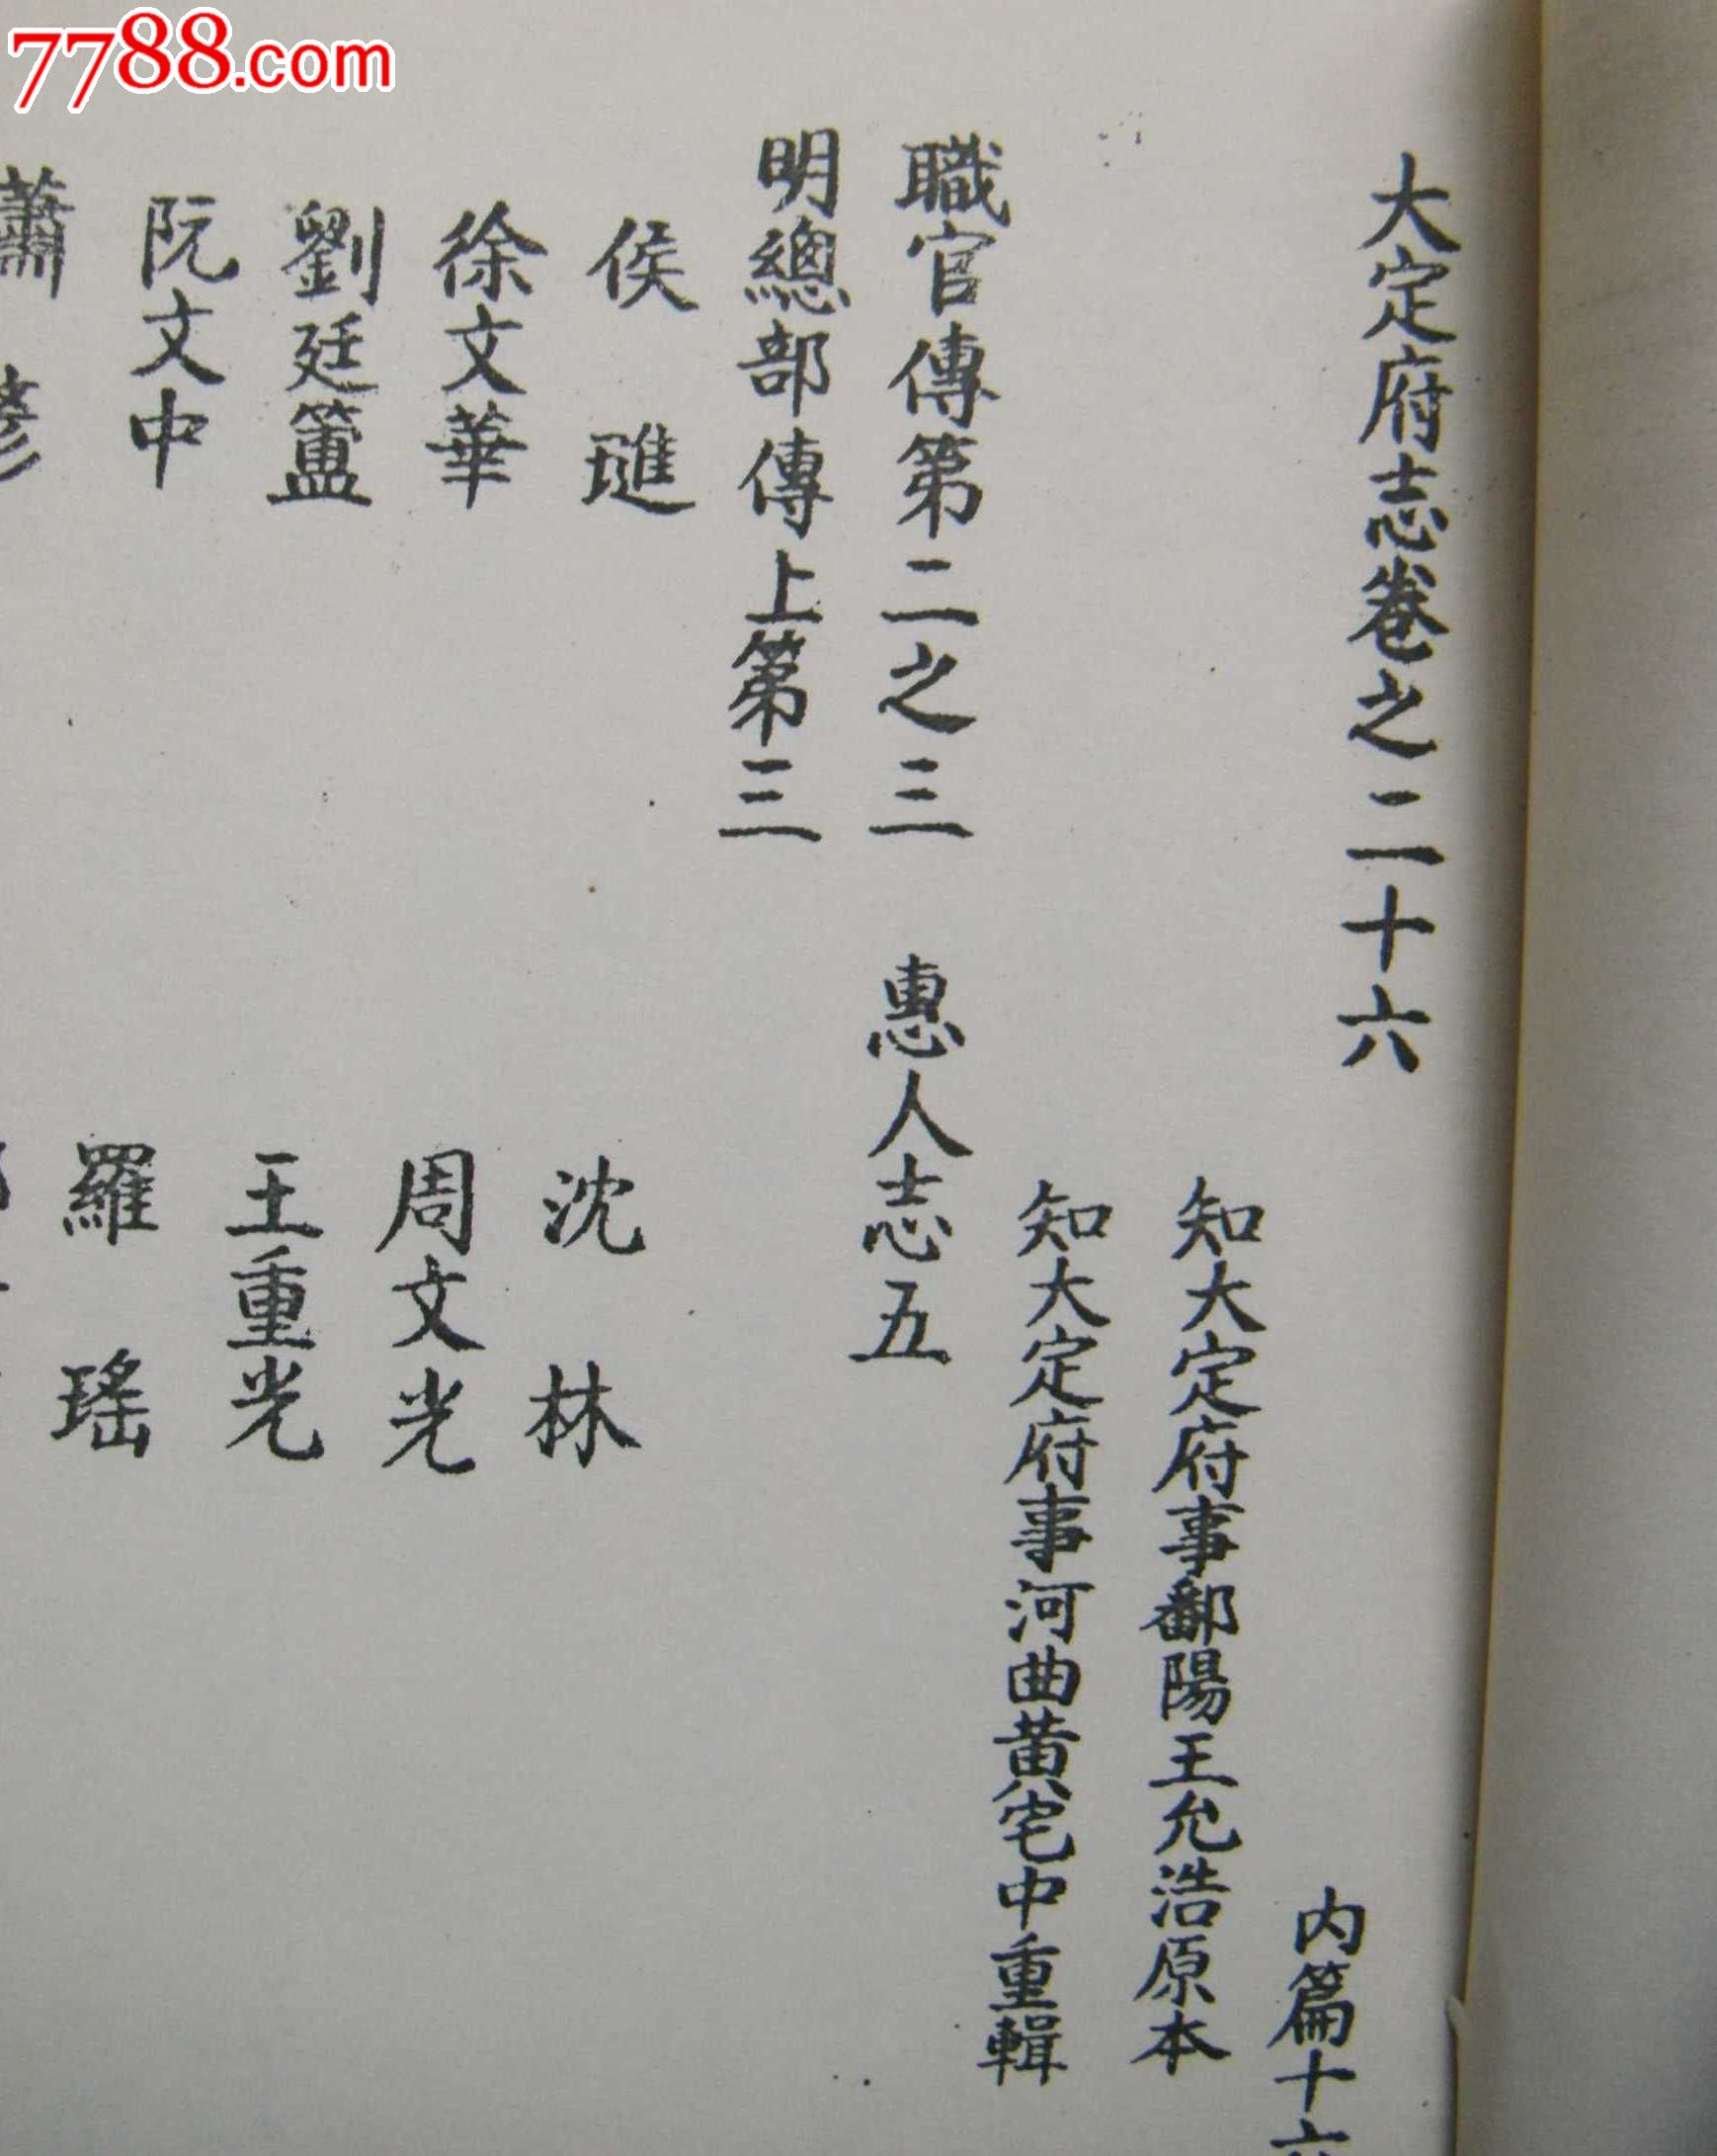 7788.com
大定府志卷之二十六
内篇十六
知大定府事鄱陽王允浩原本
知大定府事河曲黄宅中重輯
職官傳第二之三 惠人志五
明總部傳上第三
侯璡 沈林
徐文華 周文光
劉廷簠 王重光
阮文中 羅瑤
蕭